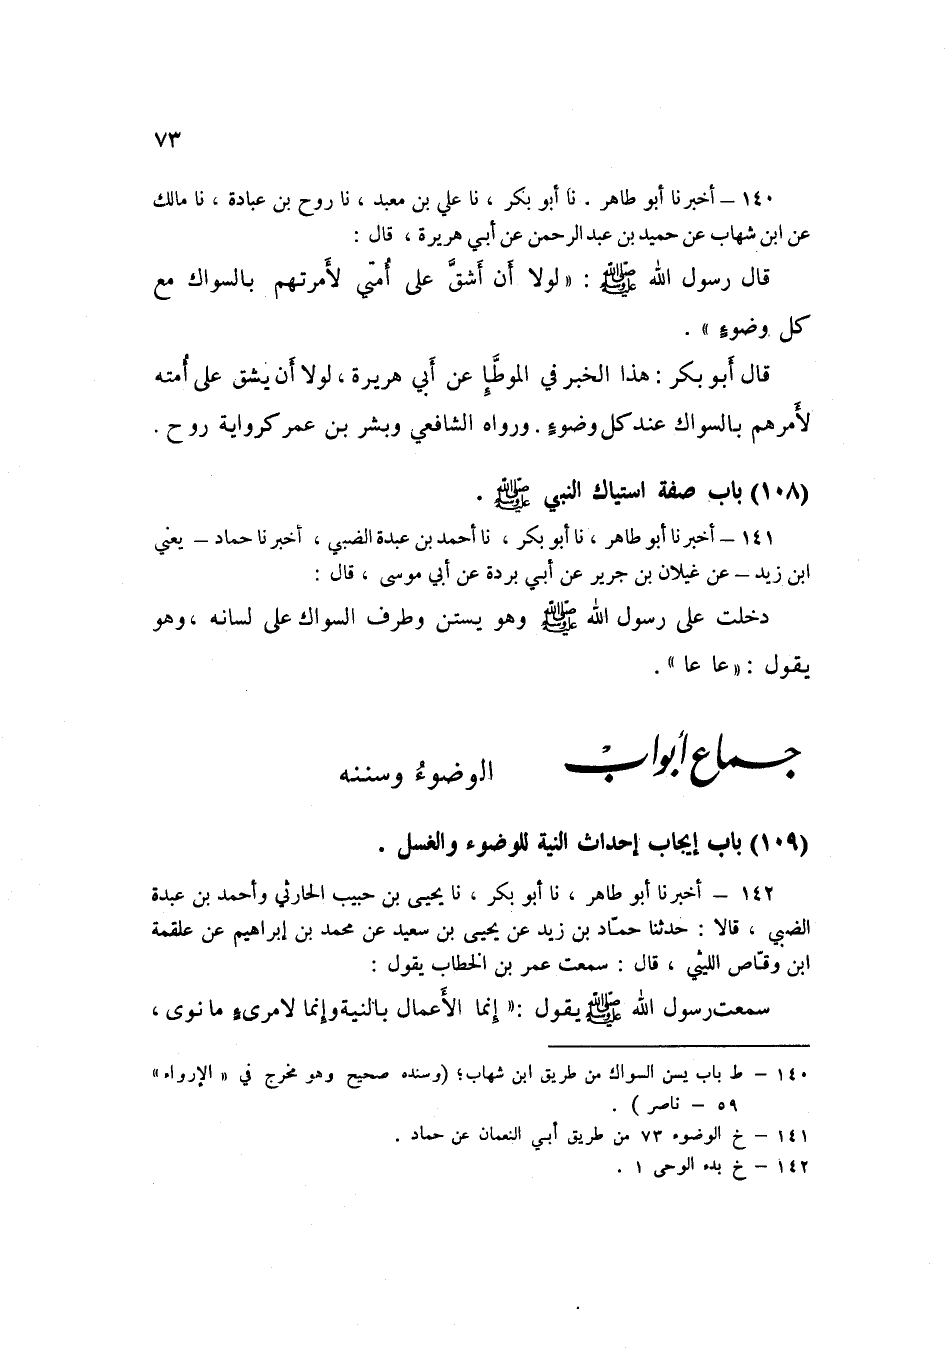 ٧٣
١٤٠ – أخبرنا أبو طاهر . نا أبو بكر ، نا علي بن معبد ، نا روح بن عبادة ، نا مالك
عن ابن شهاب عن حميد بن عبد الرحمن عن أبي هريرة ، قال :
قال رسول الله ﷺ : « لولا أن أشقَّ على أُمتّي لأَمرتهم بالسواك مع
كل وضوءٍ » .
قال أَبو بكر : هذا الخبر في الموطَّإِ عن أَبي هريرة ، لولا أَن يشق على أُمته
لأَمرهم بالسواك عند كل وضوءٍ . ورواه الشافعي وبشر بن عمر كرواية روح .
(١٠٨) باب صفة استياك النبي ﷺ .
١٤١ – أخبرنا أبو طاهر ، نا أبو بكر ، نا أحمد بن عبدة الضبي ، أخبرنا حماد – يعني
ابن زيد – عن غيلان بن جرير عن أبي بردة عن أبي موسى ، قال :
دخلت على رسول الله ﷺ وهو يستن وطرف السواك على لسانه ، وهو
يقول : « عا عا » .
جماع أبواب الوضوءُ وسننه
(١٠٩) باب إيجاب إحداث النية للوضوء والغسل .
١٤٢ – أخبرنا أبو طاهر ، نا أبو بكر ، نا يحيى بن حبيب الحارثي وأحمد بن عبدة
الضبي ، قالا : حدثنا حمّاد بن زيد عن يحيى بن سعيد عن محمد بن إبراهيم عن علقمة
ابن وقّاص الليثي ، قال : سمعت عمر بن الخطاب يقول :
سمعت رسول الله ﷺ يقول : « إنما الأَعمال بالنية وإنما لامرىءٍ ما نوى ،
١٤٠ – ط باب يسن السواك من طريق ابن شهاب؛ (وسنده صحيح وهو مخرج في « الإرواء »
٥٩ – ناصر ) .
١٤١ – خ الوضوء ٧٣ من طريق أبي النعمان عن حماد .
١٤٢ – خ بدء الوحى ١ .